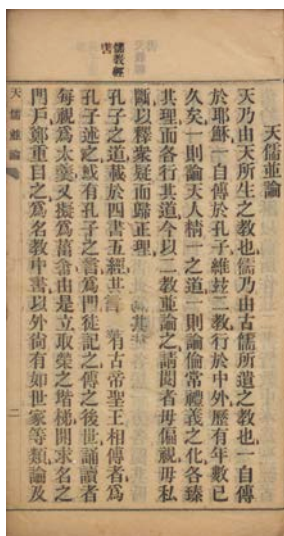 天儒並論
天乃由天所生之教也儒乃由古儒所遺之教也一自傳
於耶穌一自傳於孔子維玆二教行於中外歷有年數已
久矣一則論天人精一之道一則論倫常禮義之化各臻
其理而各行其道今以二教並論之請閱者毋偏視毋私
斷以釋衆疑而歸正理
孔子之道載於四書五經其書有古帝聖王相傳者爲
孔子述之或有孔子之言爲門徒記之傳之後世誦讀者
每視爲太羹又擬爲菑畬由是立取榮之堦梯開求名之
門戶鄭重目之爲名教中書以外尚有如世家等類論及
儒教經書
天儒並論
二